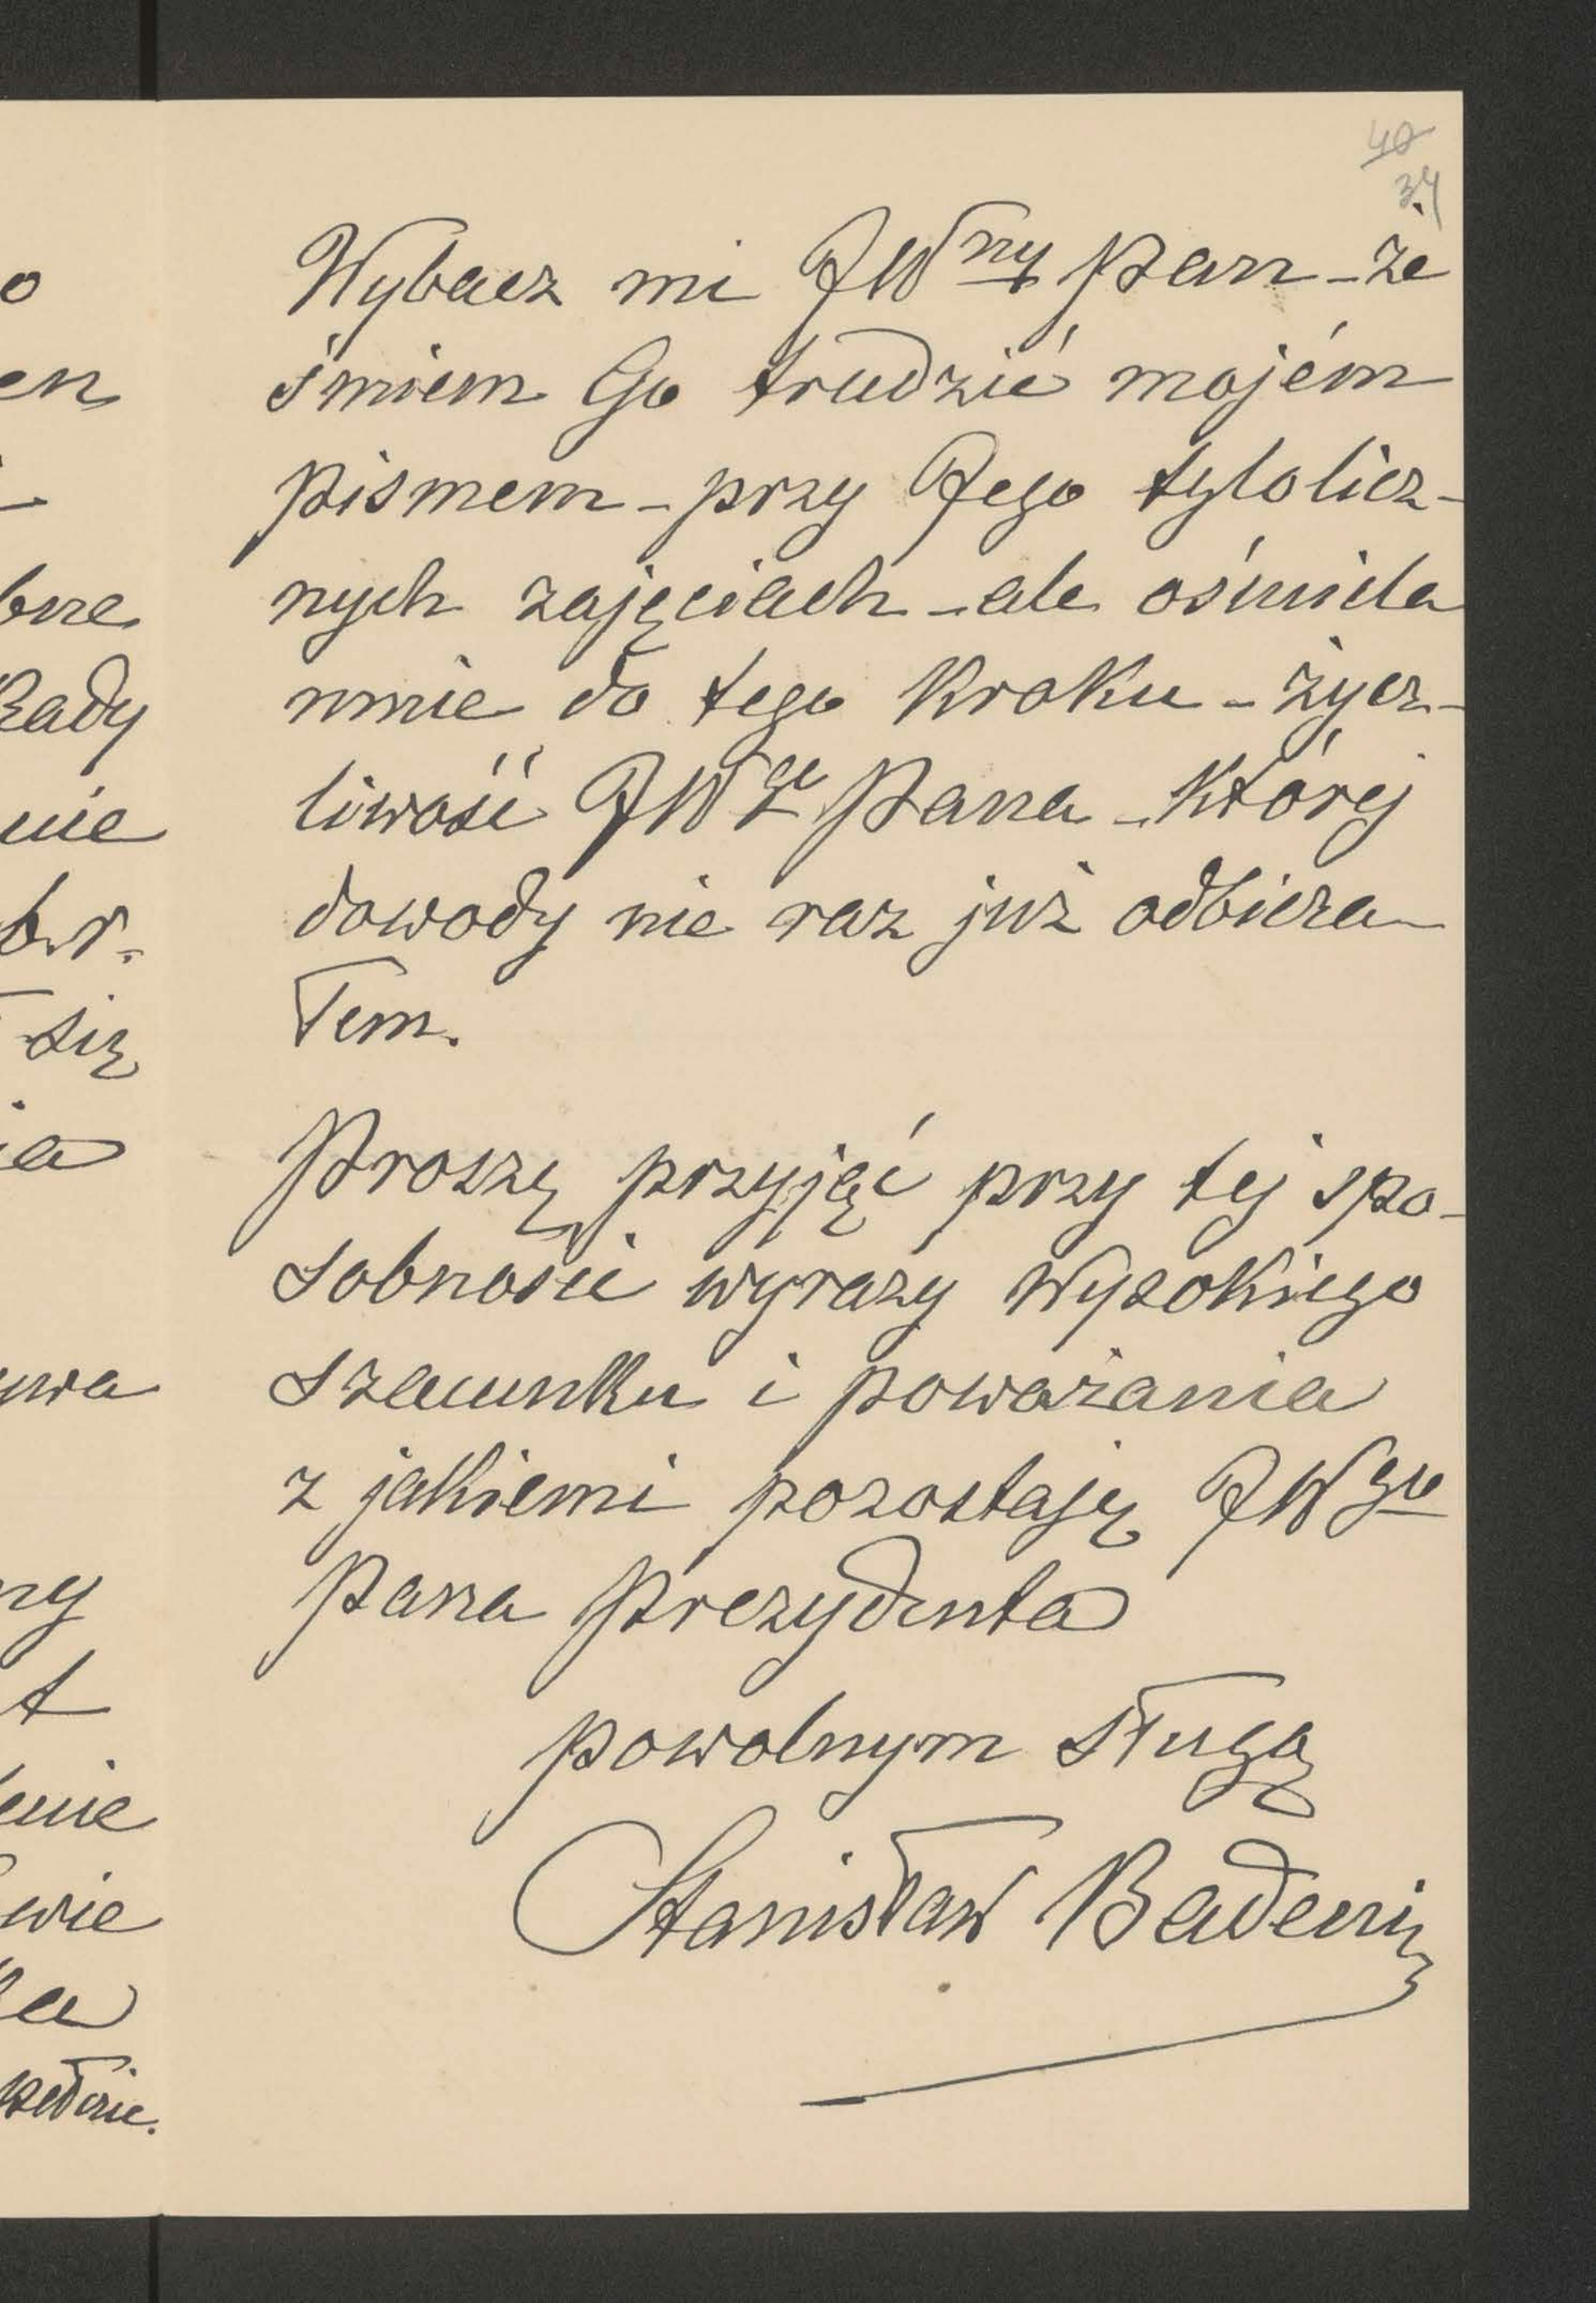 40
34
Wybacz mi JWny Pan – że
śmiem Go trudzić mojém
pismem – przy Jego tylolicz-
nych zajęciach – ale ośmiela
mnie do tego kroku – życz-
liwość JWgo Pana – której
dowody nie raz już odbiera-
łem.
Proszę przyjąć przy tej spo-
sobności wyrazy wysokiego
szacunku i poważania
z jakiemi pozostaję JWgo
Pana Prezydenta
powolnym sługą
Stanisław Badeni
o
en
bne
Rady
nie
br.
się
ia
ywa
ny
t
enie
wie